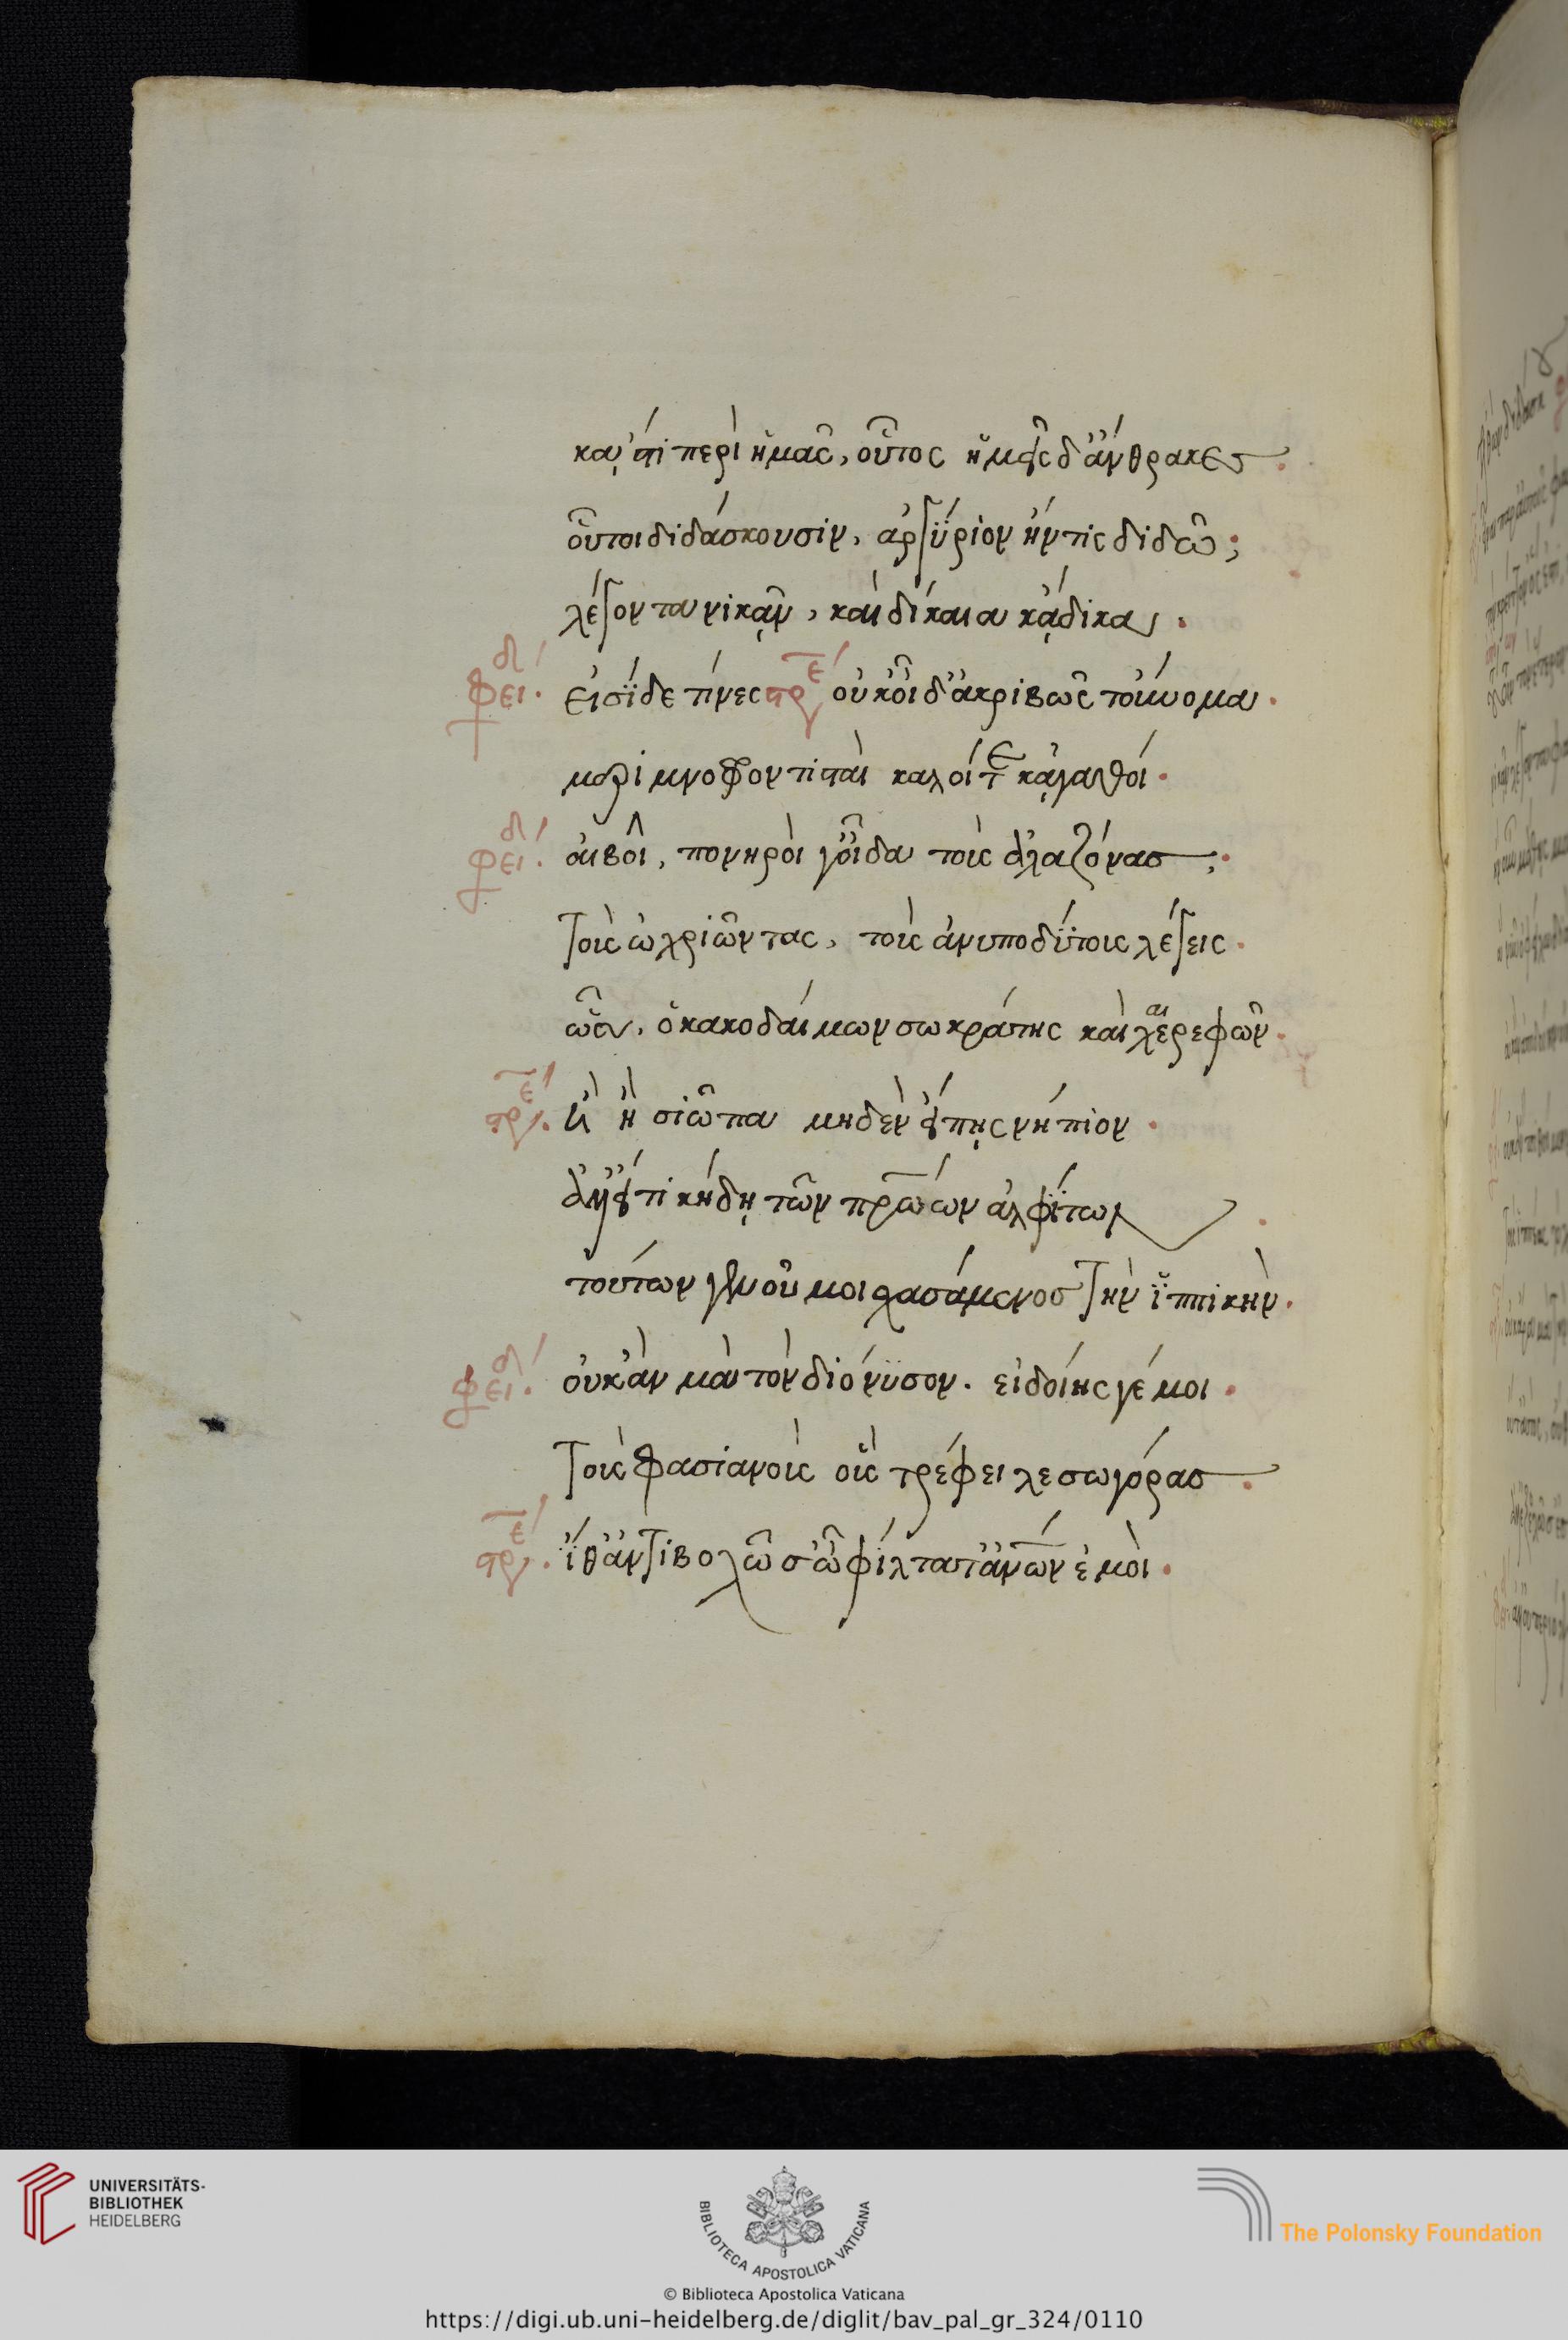 κἄστι περὶ ἡμᾶς, οὗτος ἡμεῖς δ' ἄνθρακες.
οὗτοι διδάσκουσιν, ἀργύριον ἤν τις διδῶ;
λέγοντα νικᾶν, καὶ δίκαια κᾄδικα.
φειδ. εἰσὶ δὲ τίνες στρε οὐκ οἶδ' ἀκριβῶς τοὔνομα.
μεριμνοφροντισταὶ καλοί τε κἀγαθοί.
φειδ. αἰβοῖ, πονηροὶ γ' οἶδα τοὺς ἀλαζόνας;
τοὺς ὠχριῶντας, τοὺς ἀνυποδύτους λέγεις.
ὧν, ὁ κακοδαίμων σωκράτης καὶ χαιρεφῶν.
στρε. ἢ ἢ σιῶπα μηδὲν εἴπῃς νήπιον.
ἀλλ' εἴ τι κήδῃ τῶν πρώων ἀλφίτων.
τούτων γενοῦ μοι χασάμενος τὴν ἱππικήν.
φειδ. οὐκ ἂν μὰ τὸν διόνυσον. εἰ δοίης γέ μοι.
τοὺς φασιανοὺς οὓς τρέφει λεωγόρας.
στρε. ἴθ' ἀντιβολῶ σ' ὦ φίλτατ' ἀνων ἐμοί.
UNIVERSITÄTS-
BIBLIOTHEK
HEIDELBERG
BIBLIOTECA APOSTOLICA VATICANA
The Polonsky Foundation
© Biblioteca Apostolica Vaticana
https://digi.ub.uni-heidelberg.de/diglit/bav_pal_gr_324/0110